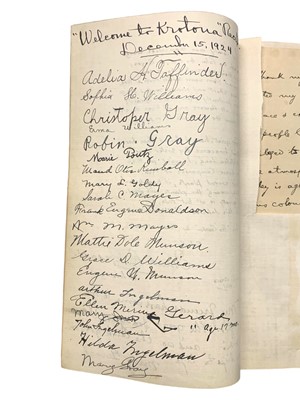 "Welcome to Krotona"
December 15, 1924
Adelia H. Taffinder
Sophia St. Williams
Christoper Gray
Erma Williams
Robin Gray
Marie Poutz
Maud Otis Kimball
Mary L. Goldy
Sarah C. Mayes
Frank Eugene Donaldson
Wm M. Mayes
Mattie Dole Munson
Grace D Williams
Eugene W. Munson
Arthur Ingelman
Ellen Gerard
Mary
" Apr 19
John Ingelman
Hilda Ingelman
Mary Gray
Thank my
ted my
people
loped to
atmosp
is a
colou